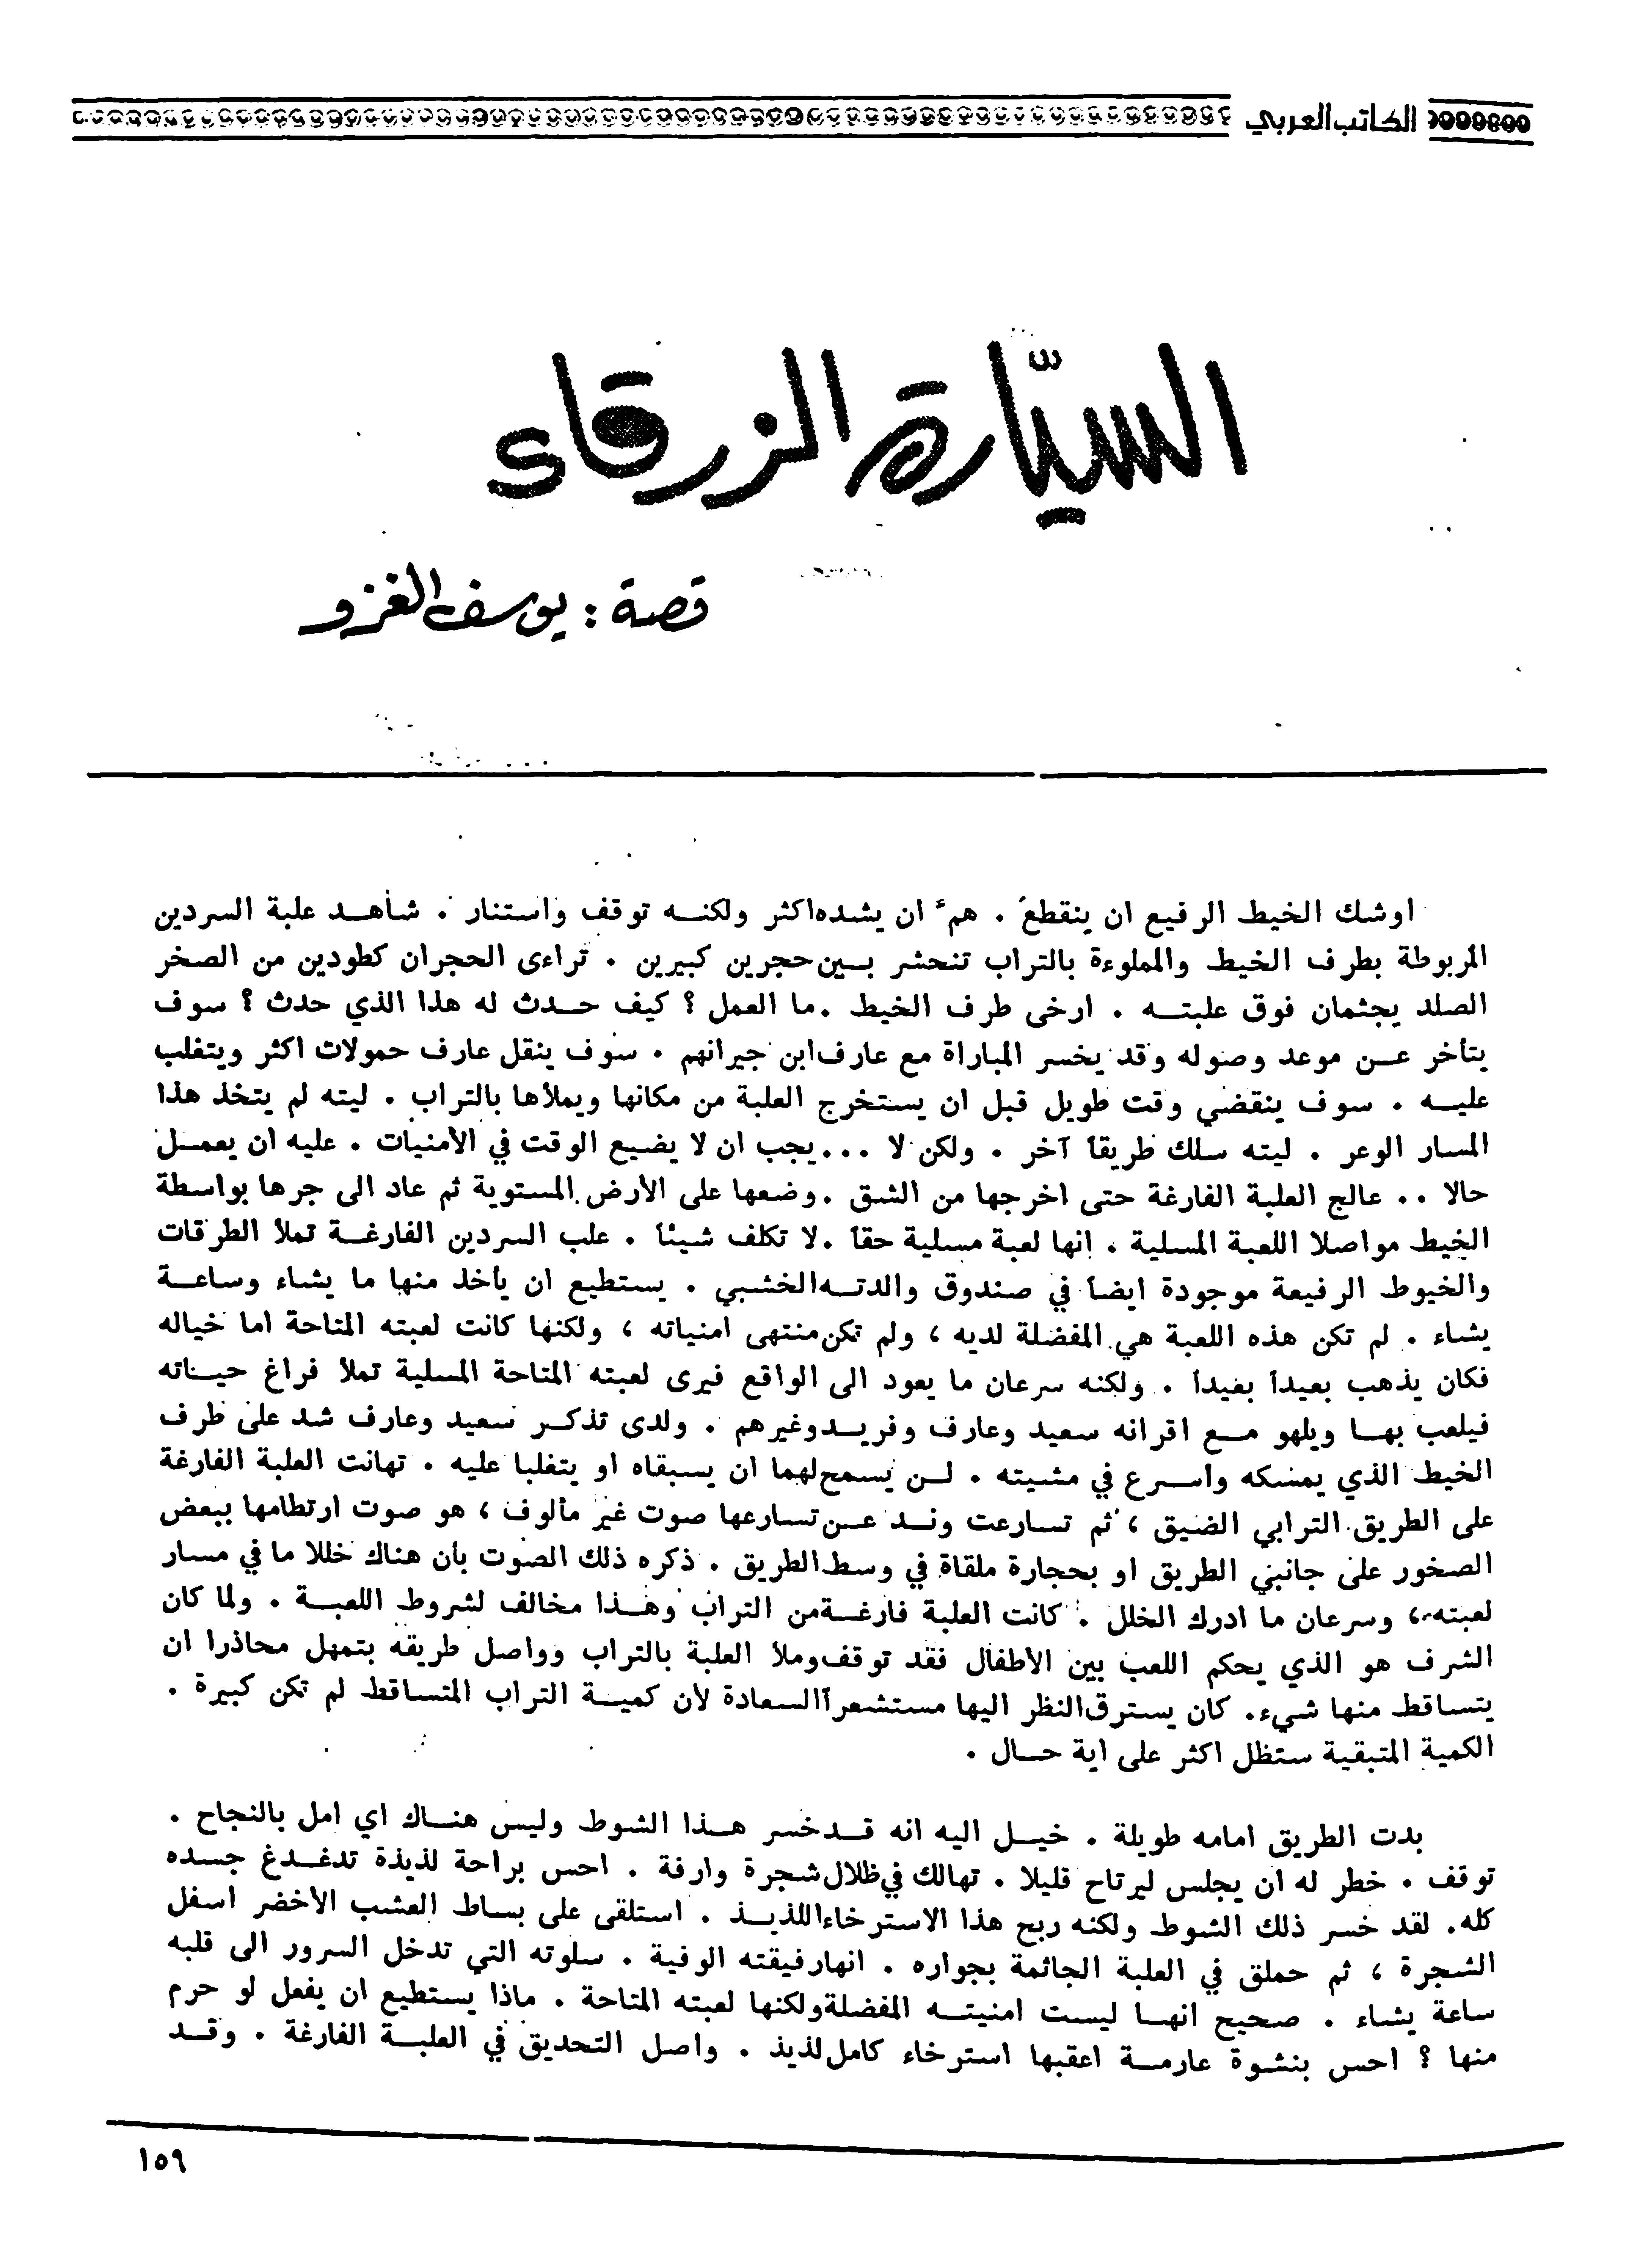 الكاتب العربي
السيّارة الزرقاء
قصة : يوسف الغزو
اوشك الخيط الرفيع ان ينقطع . همّ ان يشده اكثر ولكنه توقف واستنار . شاهد علبة السردين
المربوطة بطرف الخيط والمملوءة بالتراب تنحشر بين حجرين كبيرين . تراءى الحجران كطودين من الصخر
الصلد يجثمان فوق علبته . ارخى طرف الخيط . ما العمل ؟ كيف حدث له هذا الذي حدث ؟ سوف
يتأخر عن موعد وصوله وقد يخسر المباراة مع عارف ابن جيرانهم . سوف ينقل عارف حمولات اكثر ويتغلب
عليه . سوف ينقضي وقت طويل قبل ان يستخرج العلبة من مكانها ويملأها بالتراب . ليته لم يتخذ هذا
المسار الوعر . ليته سلك طريقاً آخر . ولكن لا ... يجب ان لا يضيع الوقت في الأمنيات . عليه ان يعمل
حالا .. عالج العلبة الفارغة حتى اخرجها من الشق . وضعها على الأرض المستوية ثم عاد الى جرها بواسطة
الخيط مواصلا اللعبة المسلية . إنها لعبة مسلية حقاً . لا تكلف شيئاً . علب السردين الفارغة تملأ الطرقات
والخيوط الرفيعة موجودة ايضاً في صندوق والدته الخشبي . يستطيع ان يأخذ منها ما يشاء وساعة
يشاء . لم تكن هذه اللعبة هي المفضلة لديه ، ولم تكن منتهى امنياته ، ولكنها كانت لعبته المتاحة اما خياله
فكان يذهب بعيداً بعيداً . ولكنه سرعان ما يعود الى الواقع فيرى لعبته المتاحة المسلية تملأ فراغ حياته
فيلعب بها ويلهو مع اقرانه سعيد وعارف وفريد وغيرهم . ولدى تذكر سعيد وعارف شد على طرف
الخيط الذي يمسكه واسرع في مشيته . لن يسمح لهما ان يسبقاه او يتغلبا عليه . تهانت العلبة الفارغة
على الطريق الترابي الضيق ، ثم تسارعت وند عن تسارعها صوت غير مألوف ، هو صوت ارتطامها ببعض
الصخور على جانبي الطريق او بحجارة ملقاة في وسط الطريق . ذكره ذلك الصوت بأن هناك خللا ما في مسار
لعبته ، وسرعان ما ادرك الخلل . كانت العلبة فارغة من التراب وهذا مخالف لشروط اللعبة . ولما كان
الشرف هو الذي يحكم اللعب بين الأطفال فقد توقف وملأ العلبة بالتراب وواصل طريقه بتمهل محاذرا ان
يتساقط منها شيء . كان يسترق النظر اليها مستشعراً السعادة لأن كمية التراب المتساقط لم تكن كبيرة .
الكمية المتبقية ستظل اكثر على اية حال .
بدت الطريق امامه طويلة . خيل اليه انه قد خسر هذا الشوط وليس هناك اي امل بالنجاح .
توقف . خطر له ان يجلس ليرتاح قليلا . تهالك في ظلال شجرة وارفة . احس براحة لذيذة تدغدغ جسده
كله . لقد خسر ذلك الشوط ولكنه ربح هذا الاسترخاء اللذيذ . استلقى على بساط العشب الأخضر اسفل
الشجرة ، ثم حملق في العلبة الجاثمة بجواره . انها رفيقته الوفية . سلوته التي تدخل السرور الى قلبه
ساعة يشاء . صحيح انها ليست امنيته المفضلة ولكنها لعبته المتاحة . ماذا يستطيع ان يفعل لو حرم
منها ؟ احس بنشوة عارمة اعقبها استرخاء كامل لذيذ . واصل التحديق في العلبة الفارغة . وقد
١٥٩